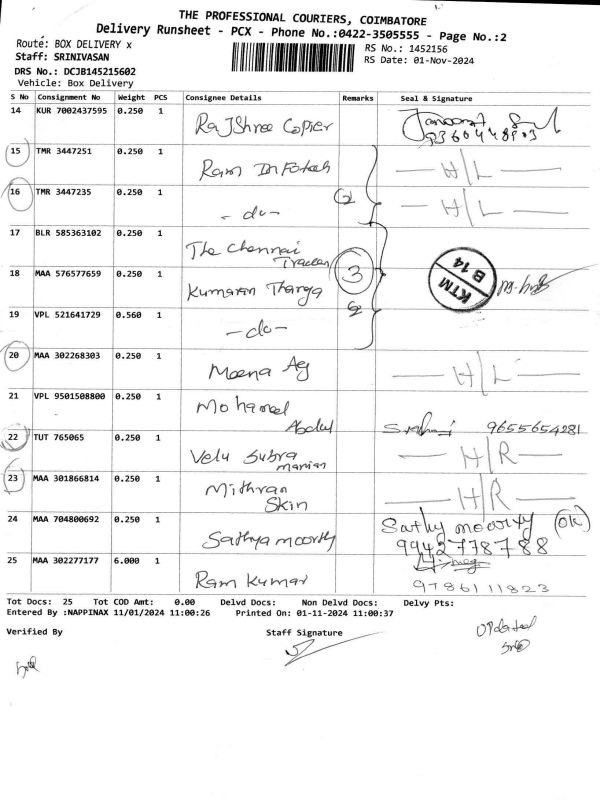 THE PROFESSIONAL COURIERS, COIMBATORE
Delivery Runsheet - PCX - Phone No.:0422-3505555 - Page No.:2
Route: BOX DELIVERY x
RS No.: 1452156
Staff: SRINIVASAN
RS Date: 01-Nov-2024
DRS No.: DCJB145215602
Vehicle: Box Delivery
S No Consignment No Weight PCS Consignee Details Remarks Seal & Signature
14 KUR 7002437595 0.250 1 RajShree Copier
15 TMR 3447251 0.250 1 Ram H/L
16 TMR 3447235 0.250 1 - do - H/L
17 BLR 585363102 0.250 1 The Chennai
KTM B14
3
18 MAA 576577659 0.250 1 Kumaran Thanga
19 VPL 521641729 0.560 1 - do -
20 MAA 302268303 0.250 1 Meena Ag H/L
21 VPL 9501508800 0.250 1 Mohamed
Abdul 9655654281
22 TUT 765065 0.250 1 Velu Subra
manian H/R
23 MAA 301866814 0.250 1 Mithran
Skin H/R
24 MAA 704800692 0.250 1 Sathya moorthy Sathy moorty OK
9942778788
25 MAA 302277177 6.000 1 Ram Kumar 9786111823
Tot Docs: 25 Tot COD Amt: 0.00 Delvd Docs: Non Delvd Docs: Delvy Pts:
Entered By :NAPPINAX 11/01/2024 11:00:26 Printed On: 01-11-2024 11:00:37
Verified By Staff Signature
Updated